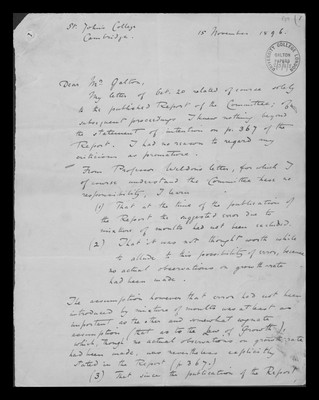 St. John's College
Cambridge.
15 November 1896.
UNIVERSITY COLLEGE LONDON
GALTON
PAPERS
Dear Mr Galton,
My letter of Oct. 20 related of course solely
to the published Report of the Committee; of its
subsequent proceedings I knew nothing beyond
the statement of intention on p. 367 of the
Report. I had no reason to regard my
criticisms as premature.
From Professor Weldon's letter, for which I
of course understand the Committee have no
responsibility, I learn
(1) That at the time of the publication of
the Report the suggested error due to
mixture of moults had not been excluded.
(2) That it was not thought worth while
to allude to this possibility of error, because
no actual observations on growth rate
had been made.
The assumption however that error had not been
introduced by mixture of moults was at least as
important as the other and somewhat separate
assumption (that as to the Law of Growth),
which, though no actual observations on growth-rate
had been made, was nevertheless explicitly
stated in the Report (p 367.)
(3) that since the publication of the Report